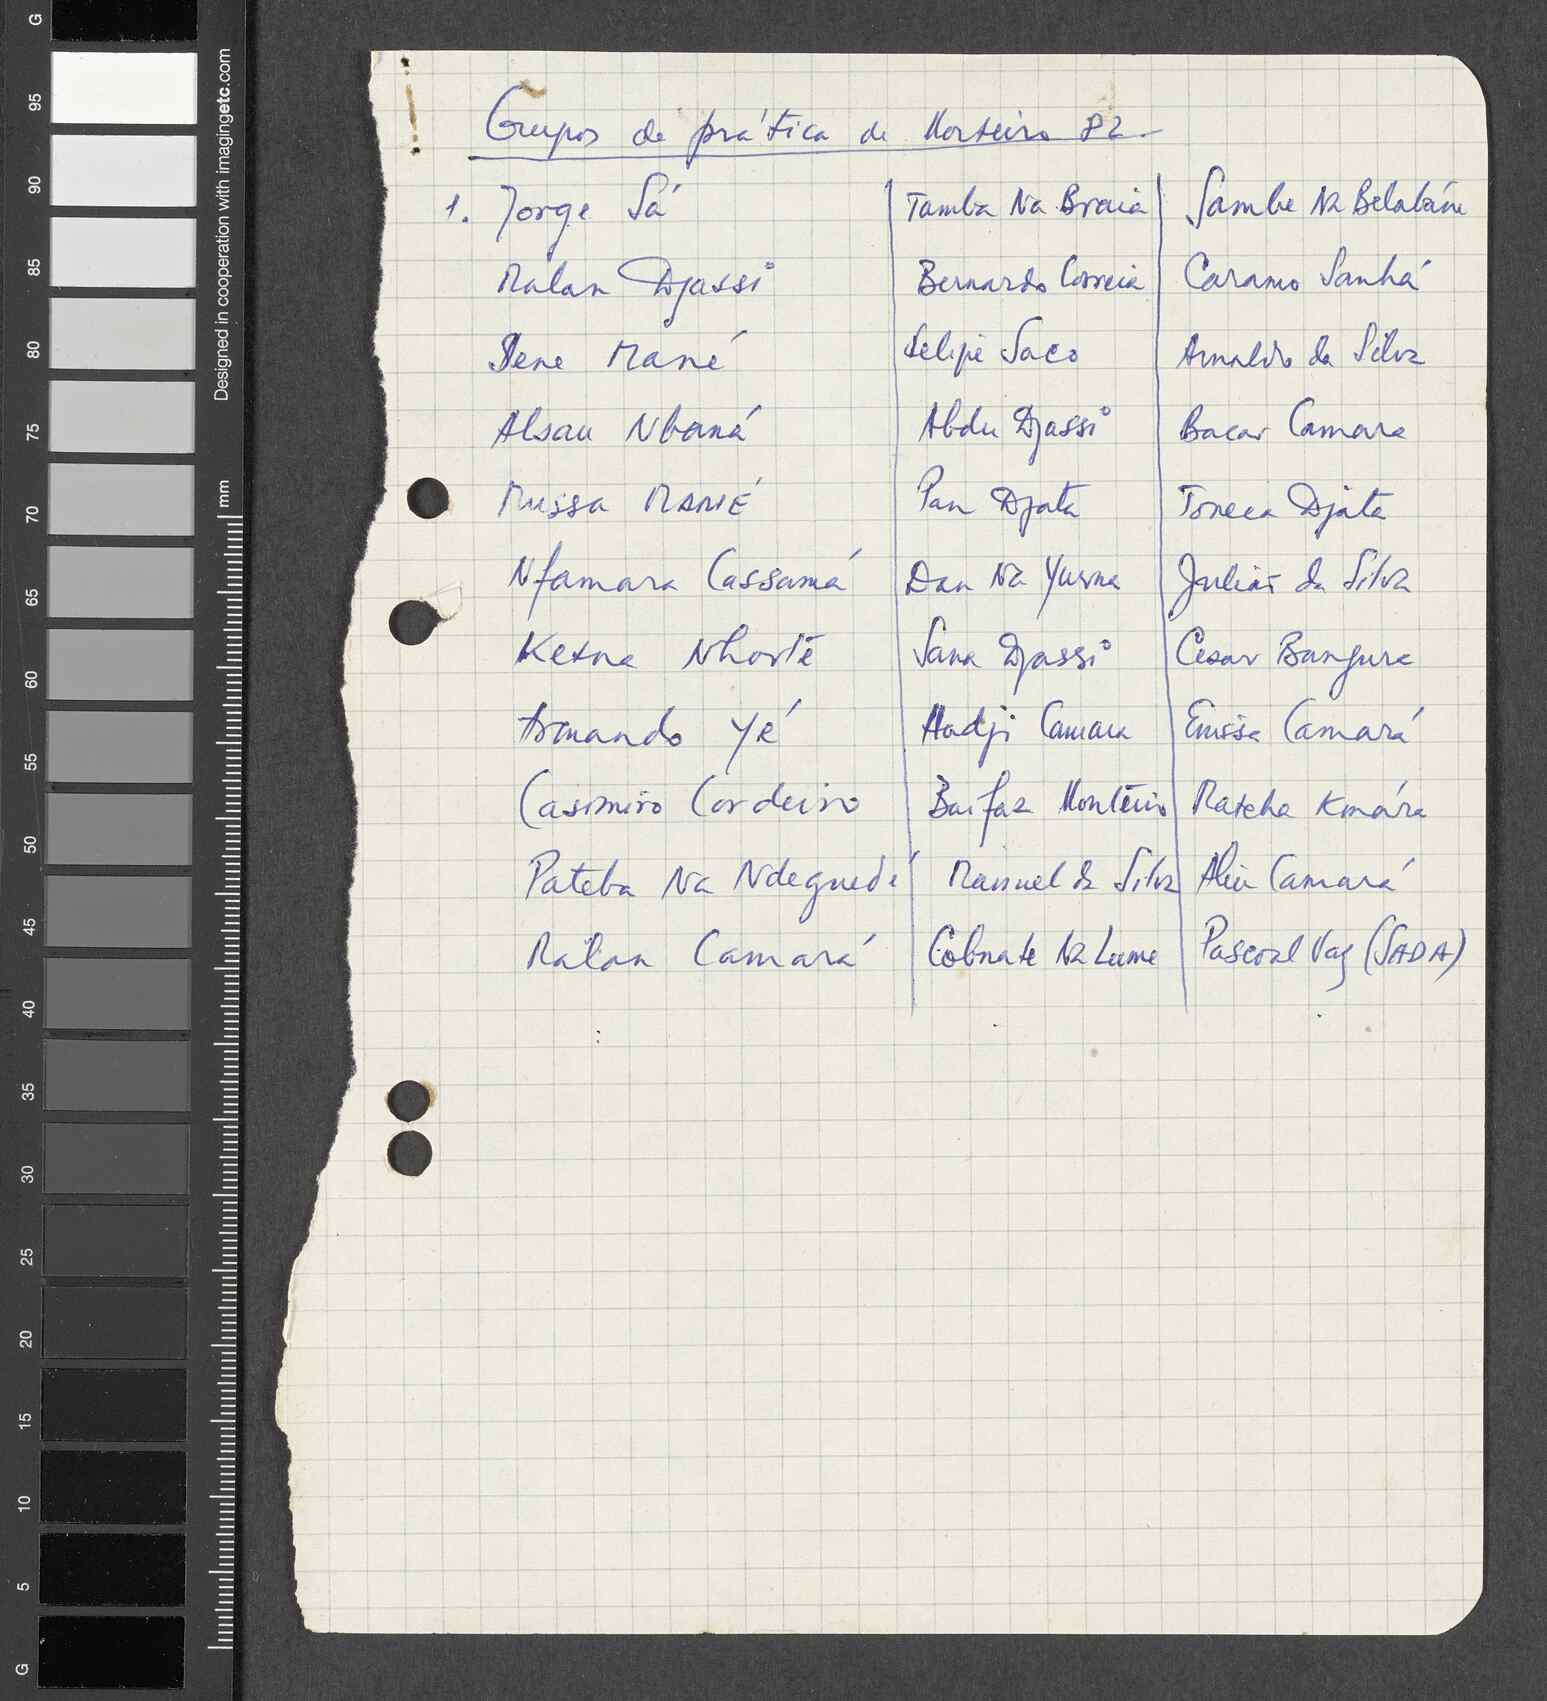 Grupos de prática de Morteiro 82
1. Jorge Sá Tamba Na Braia Sambe Na Belabáne
Malan Djassi Bernardo Correia Caramo Sanhá
Sene Mané Felipe Saco Arnaldo da Silva
Alsau Nbaná Abdu Djassi Bacar Camara
Mussa MANÉ Pan Djata Toneca Djata
Nfamara Cassamá Dan Na Yusna Julião da Silva
Ketna Nhorlé Sana Djassi Cesar Bangura
Armando Yé Hadji Camara Enissa Camará
Casimiro Cordeiro Baifaz Monteiro Matcha Kmára
Pateba Na Ndeguedé Manuel da Silva Aliu Camará
Malan Camará Cobnate Na Lume Pascoal Vaz (SADA)
G
95
90
85
80
75
70
65
60
55
50
45
40
35
30
25
20
15
10
5
G
Designed in cooperation with imagingetc.com
mm